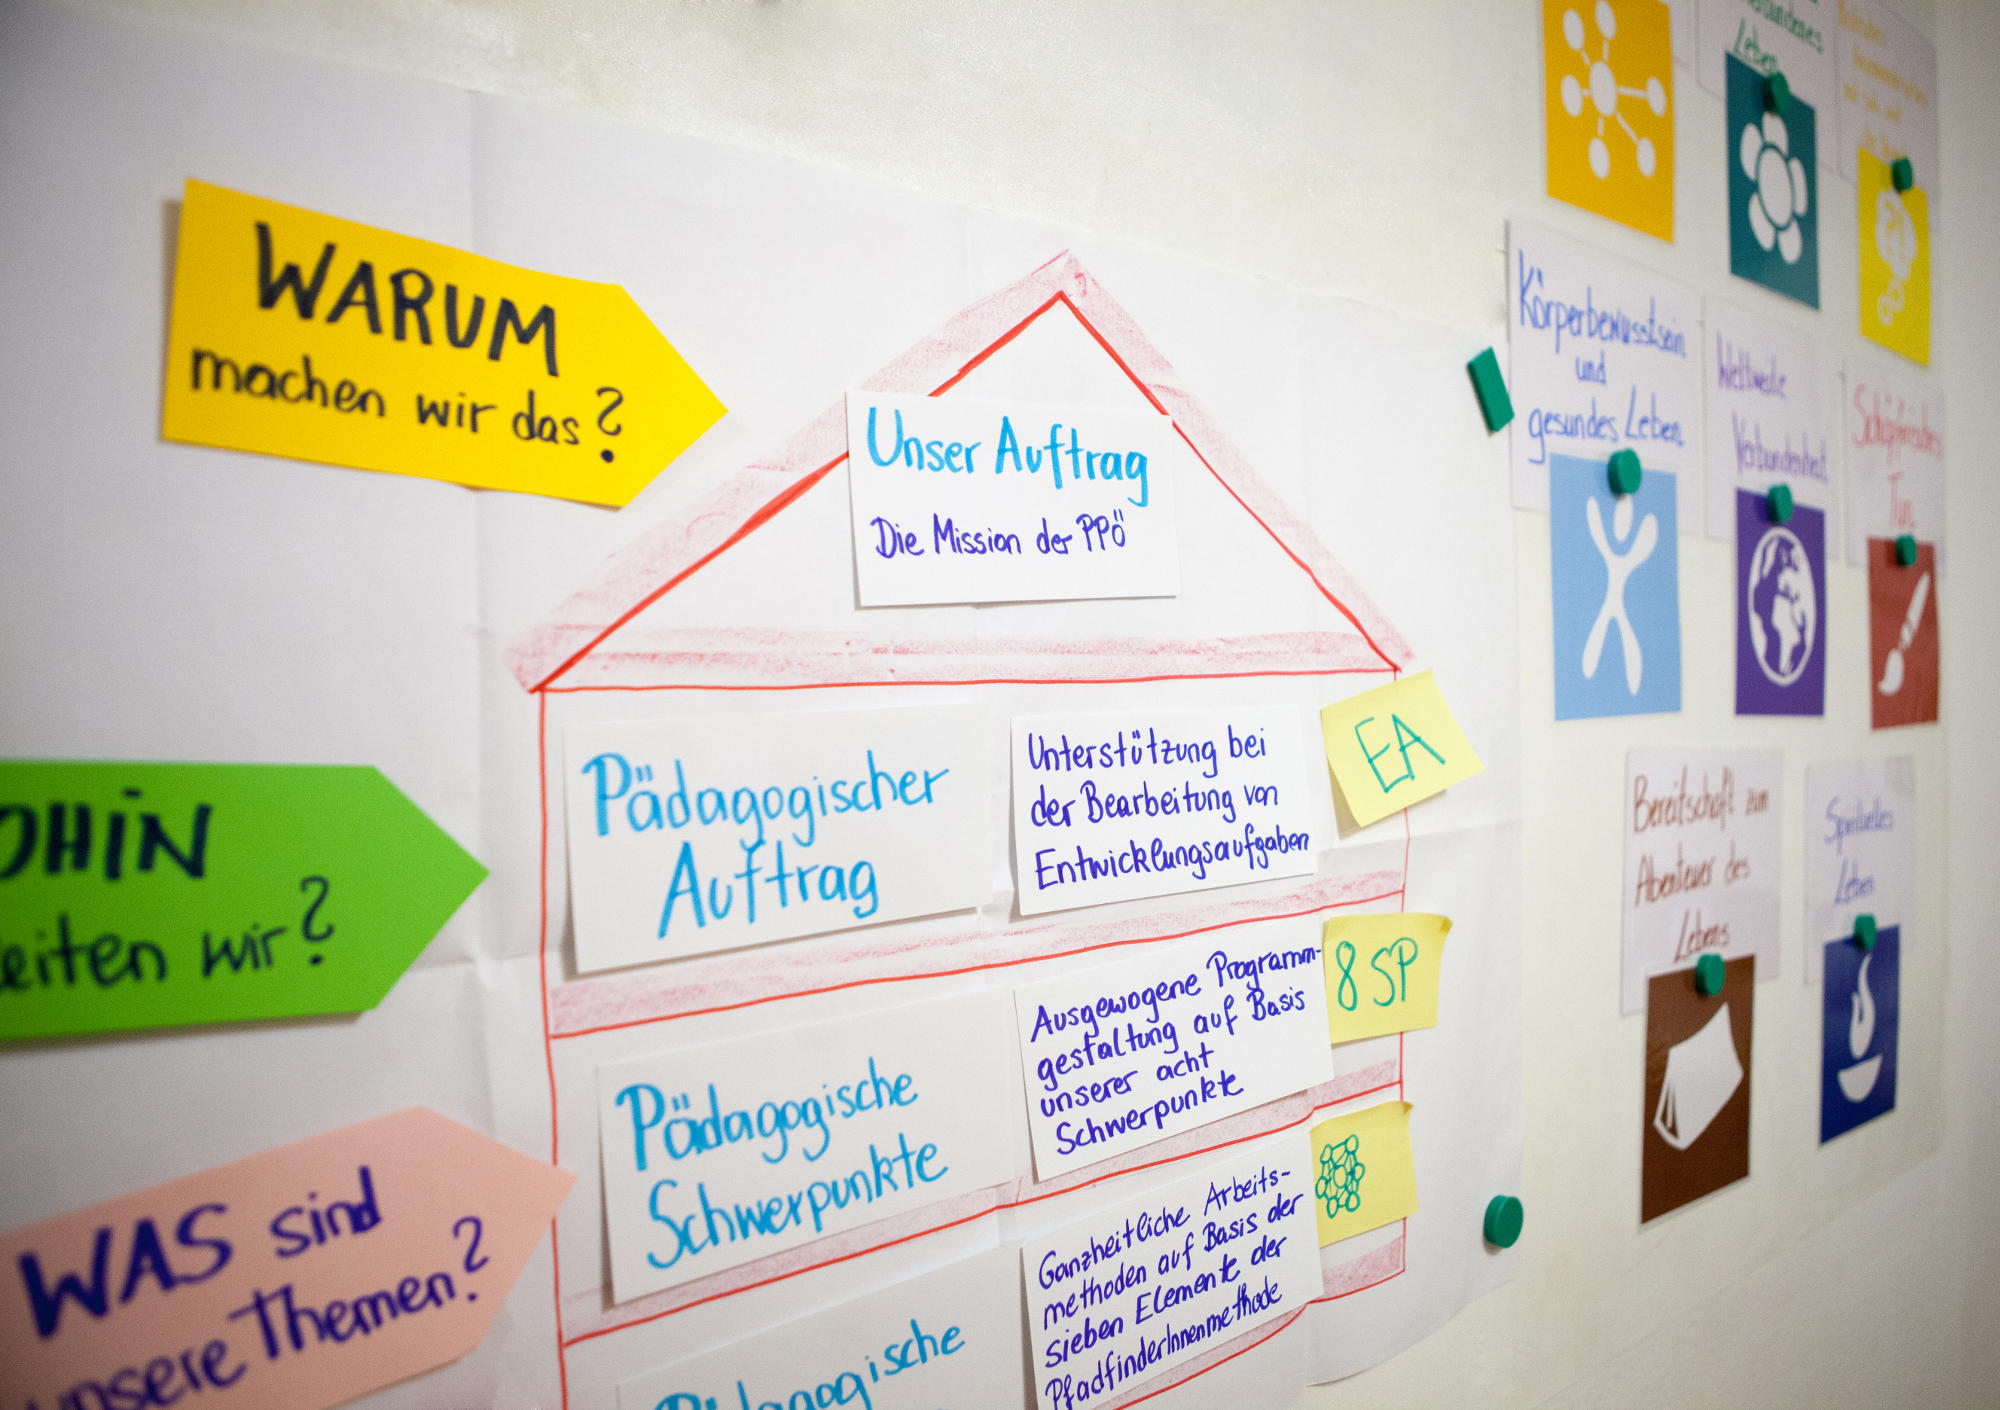 WARUM
machen wir das?
Unser Auftrag
Die Mission der PPÖ
OHIN
eiten wir?
WAS sind
unsere Themen?
Pädagogischer
Auftrag
Unterstützung bei
der Bearbeitung von
Entwicklungsaufgaben
EA
Pädagogische
Schwerpunkte
Ausgewogene Programm-
gestaltung auf Basis
unserer acht
Schwerpunkte
8 SP
Pädagogische
Ganzheitliche Arbeits-
methoden auf Basis der
sieben Elemente der
PfadfinderInnenmethode
Leben
Körperbewusstsein
und
gesundes Leben
Weltweite
Verbundenheit
Schöpferisches
Tun
Bereitschaft zum
Abenteuer des
Lebens
Spirituelles
Leben